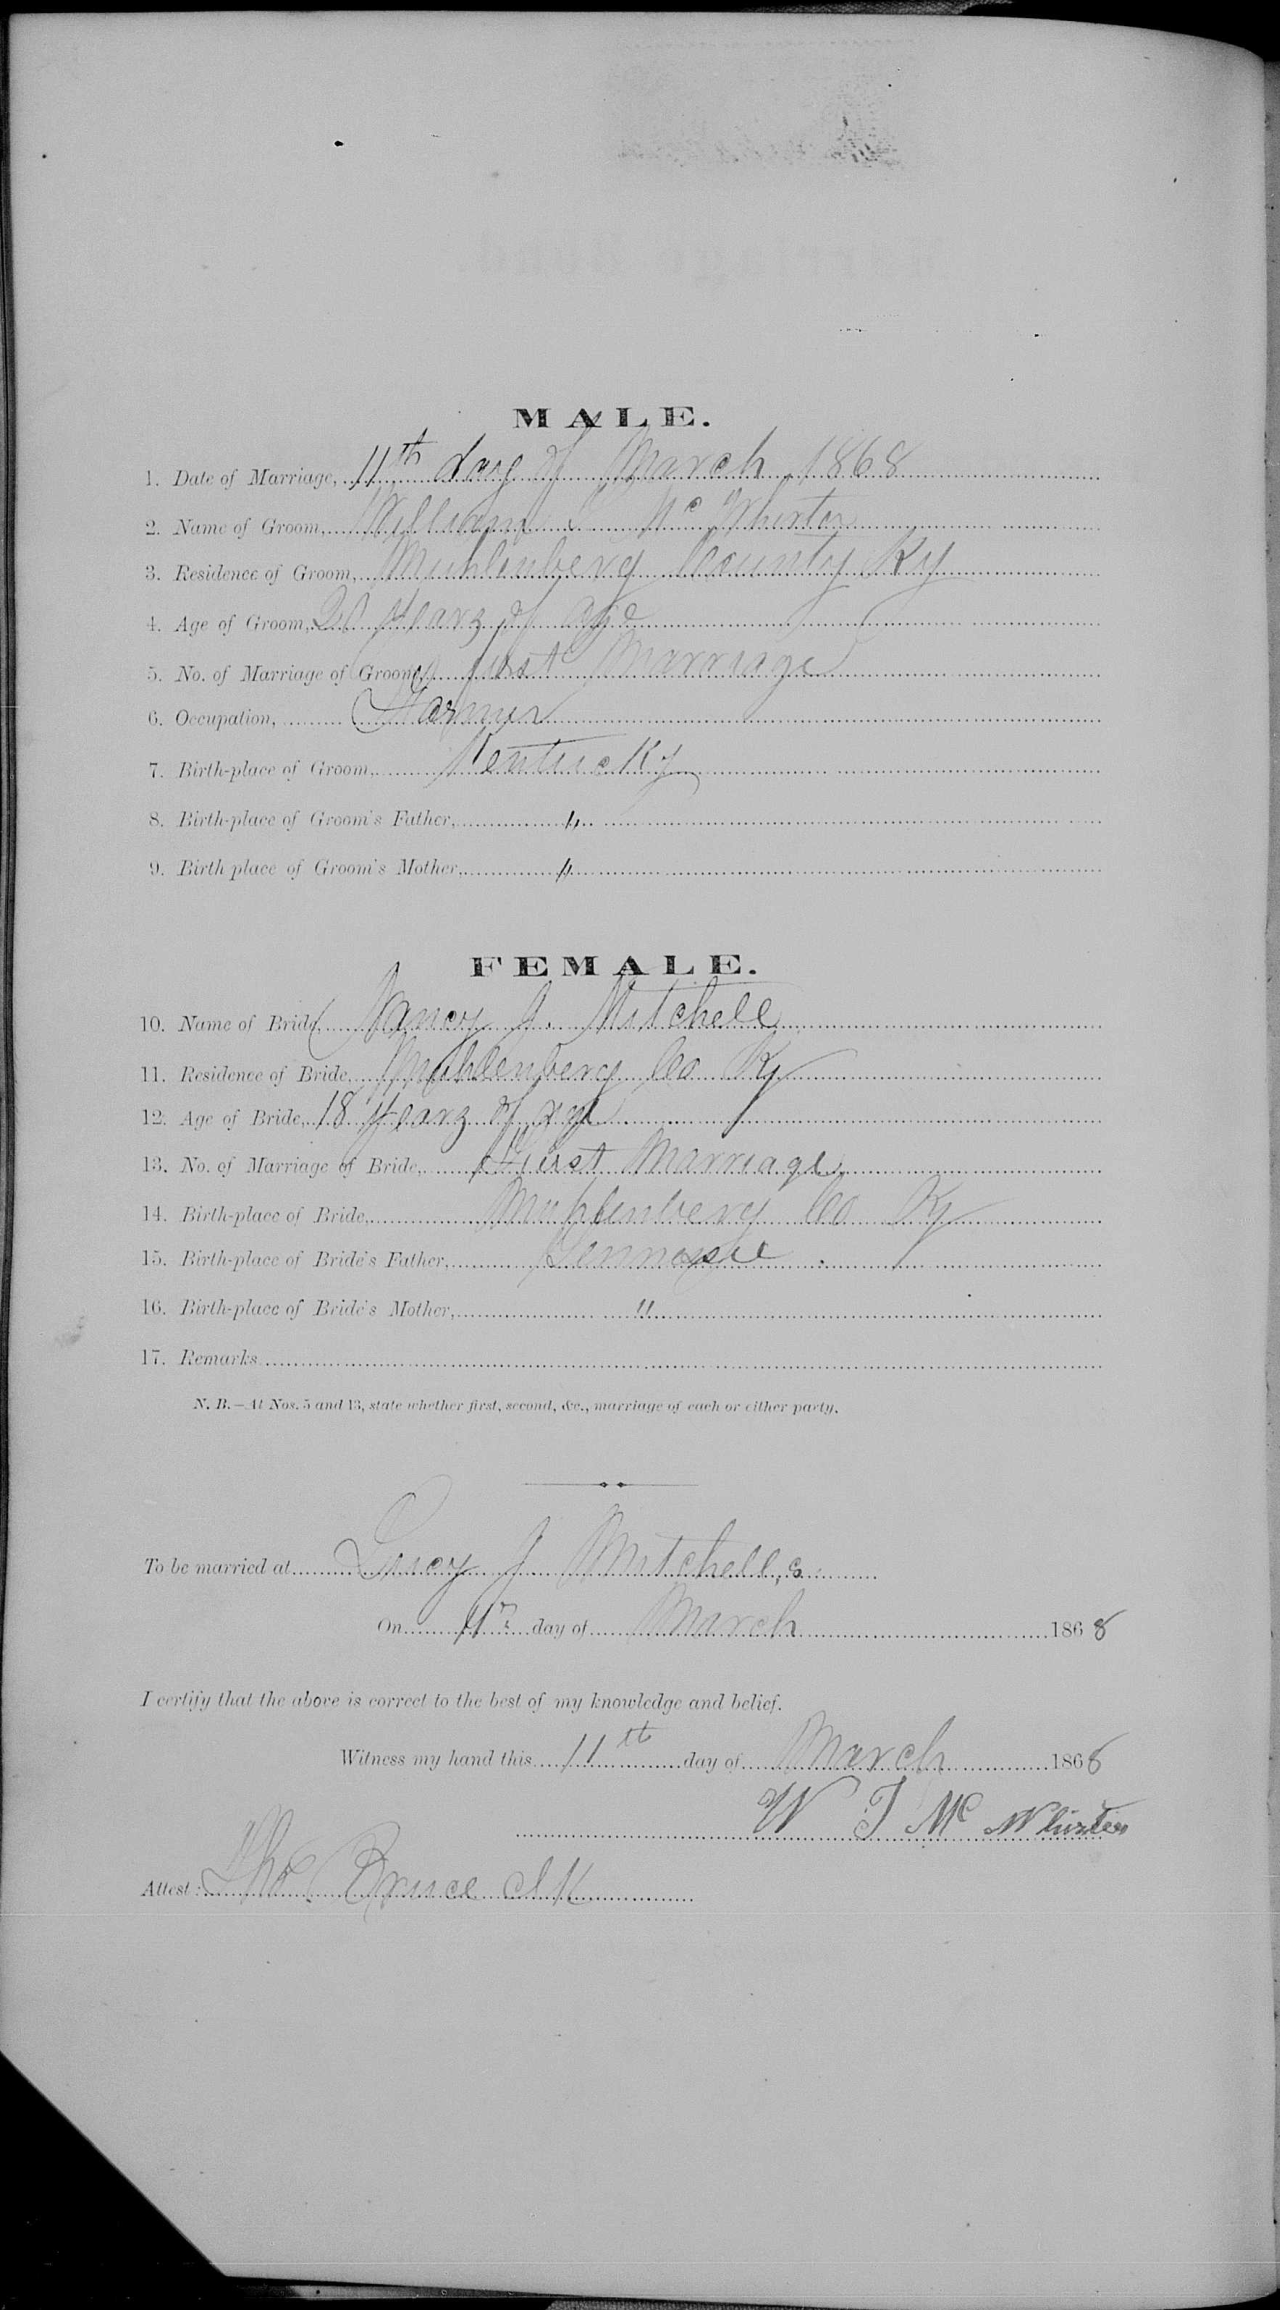 MALE.
1. Date of Marriage, 11th day of March 1868
2. Name of Groom, William T Mc Whirter
3. Residence of Groom, Muhlenberg County Ky
4. Age of Groom, years of age
5. No. of Marriage of Groom, first Marriage
6. Occupation, Farmer
7. Birth-place of Groom, Kentucky
8. Birth-place of Groom's Father, "
9. Birth place of Groom's Mother, "
FEMALE.
10. Name of Bride, Nancy J. Mitchell
11. Residence of Bride, Muhlenberg Co Ky
12. Age of Bride, 18 years of age
13. No. of Marriage of Bride, First Marriage
14. Birth-place of Bride, Muhlenberg Co Ky
15. Birth-place of Bride's Father, Tennessee
16. Birth-place of Bride's Mother, "
17. Remarks
N. B.—At Nos. 5 and 13, state whether first, second, &c., marriage of each or either party.
To be married at Lucy J Mitchell,s
On 11th day of March 1868
I certify that the above is correct to the best of my knowledge and belief.
Witness my hand this 11th day of March 1868
W T Mc Whirter
Attest: Tho. Bruce clk